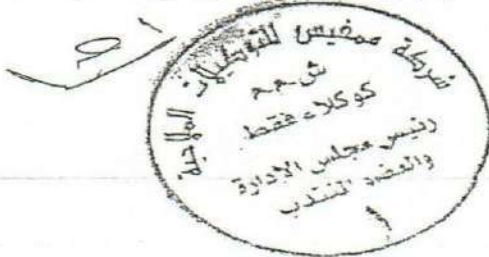 شركة ممفيس للتوكيلات الملاحية
ش.م.م
كوكلاء فقط
رئيس مجلس الادارة
والعضو المنتدب